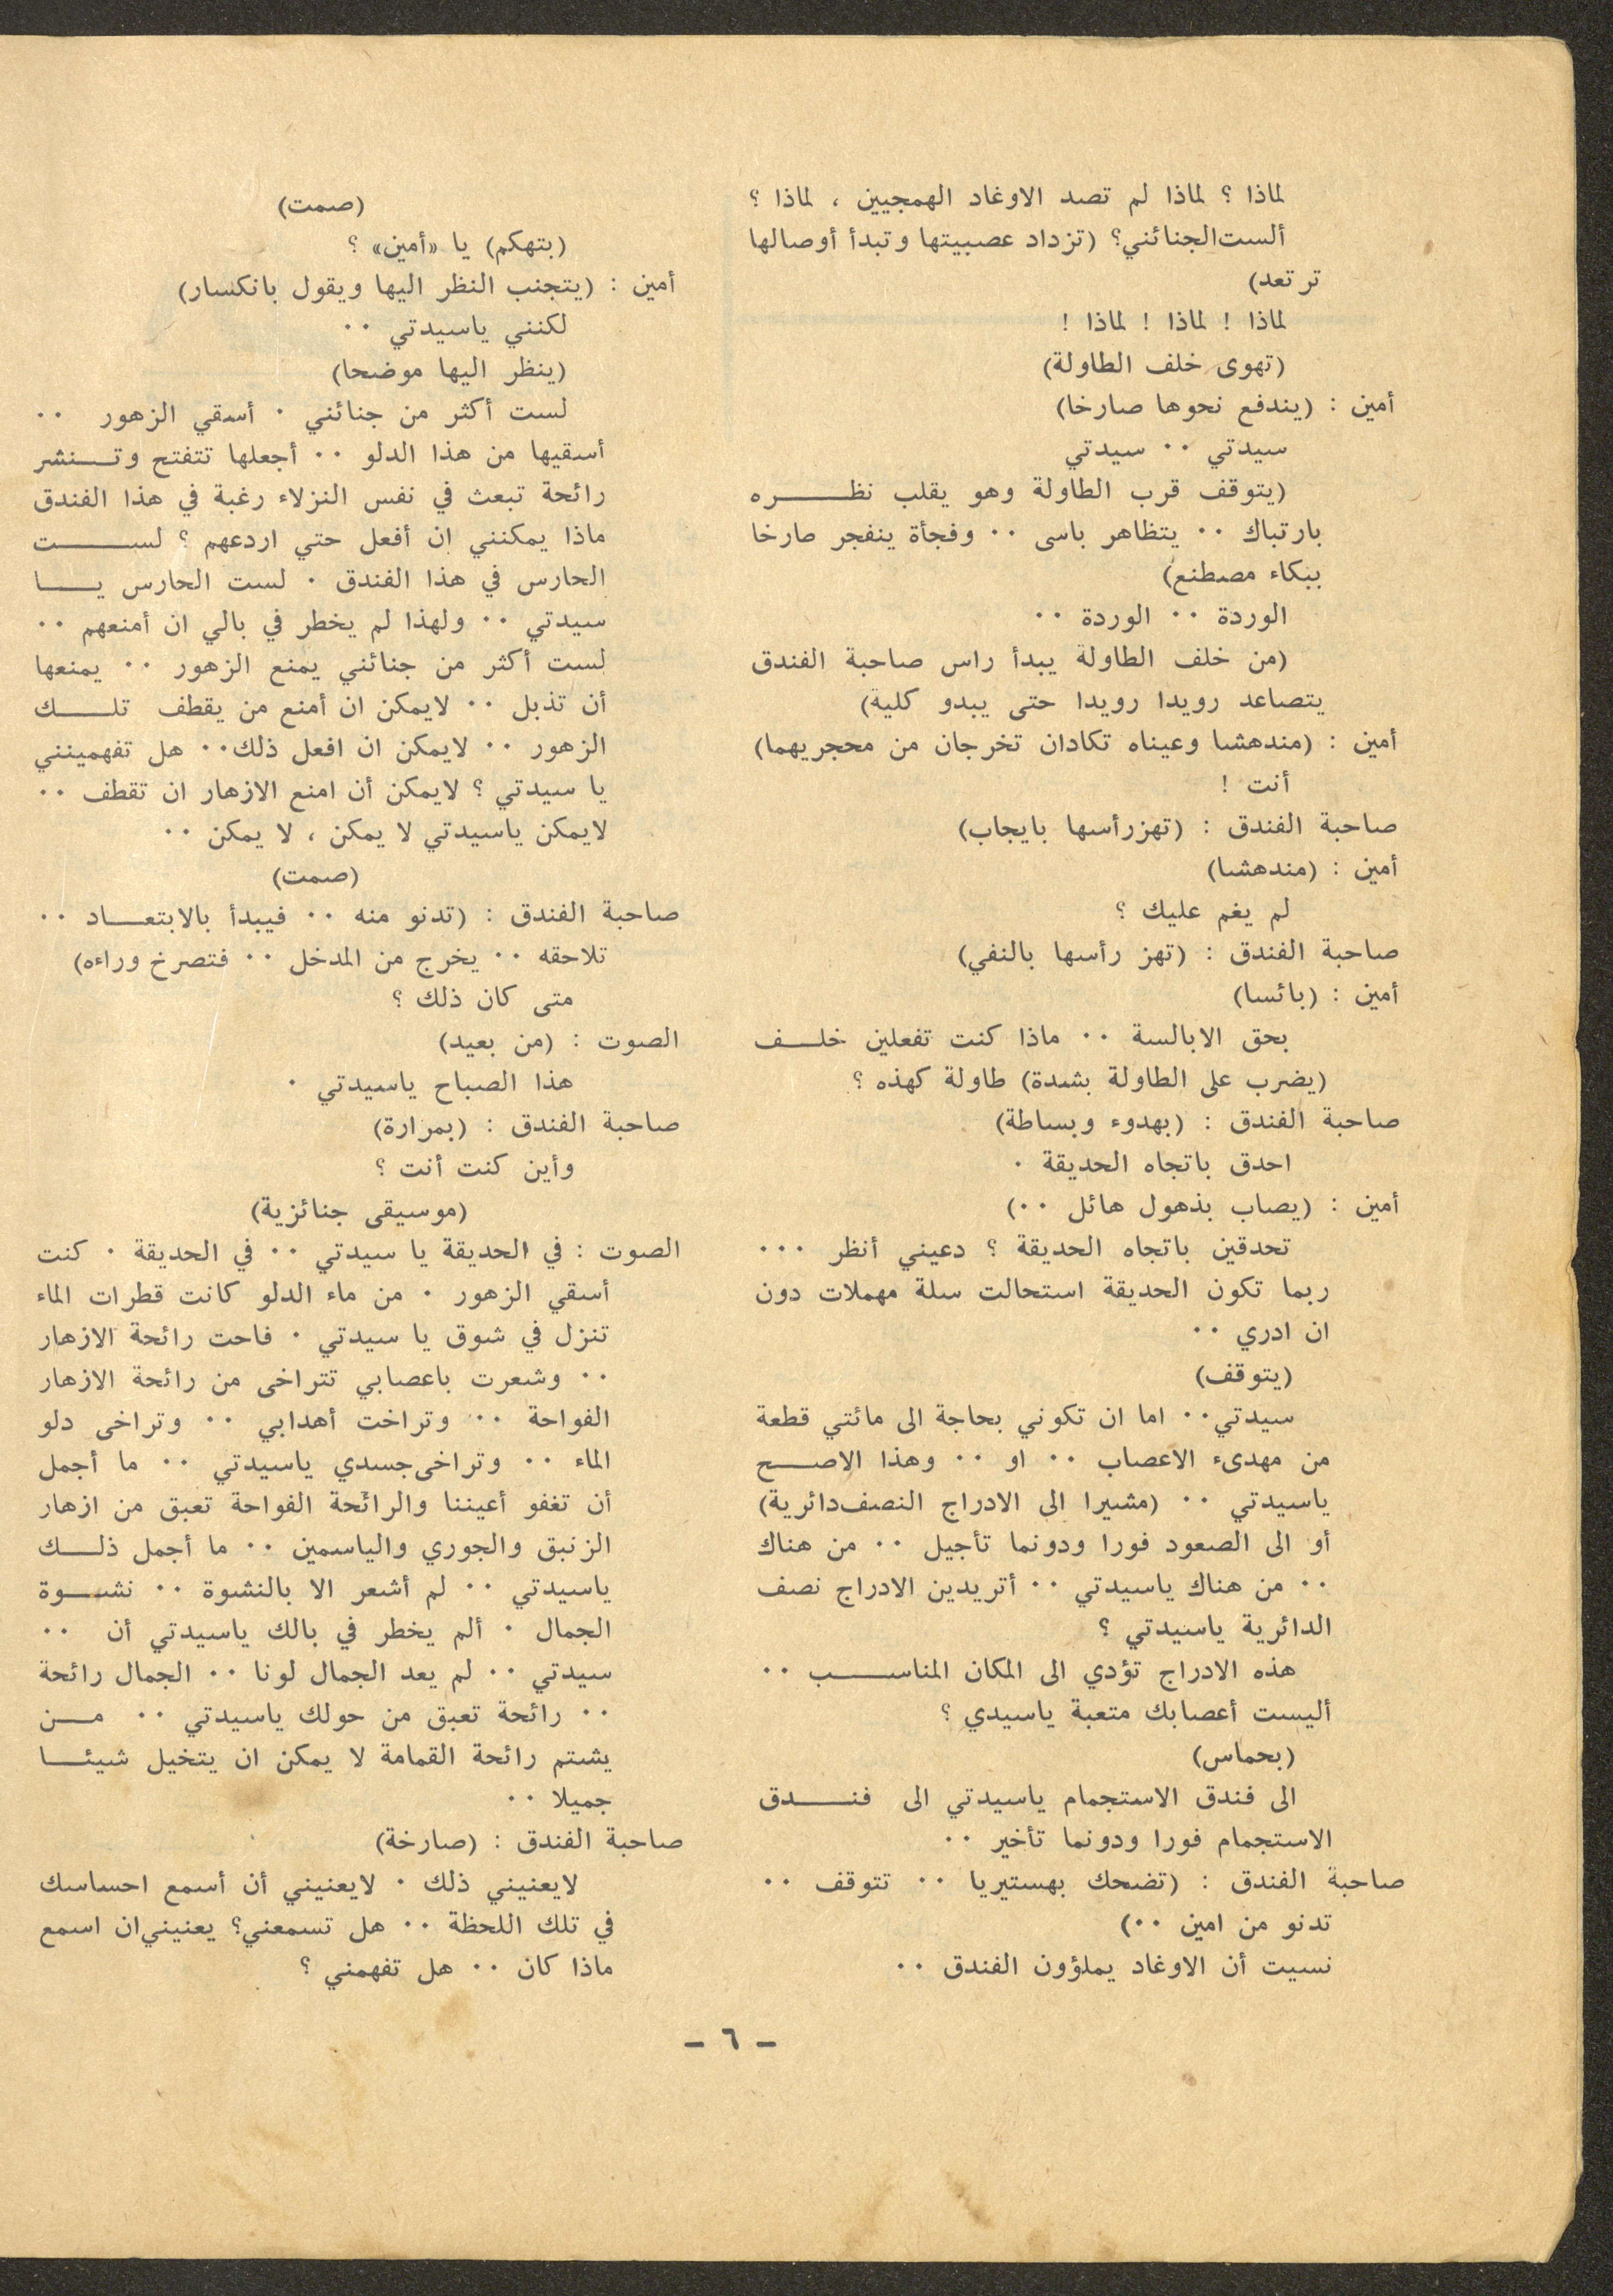 لماذا ؟ لماذا لم تصد الاوغاد الهمجيين ، لماذا ؟
ألست الجنائني؟ (تزداد عصبيتها وتبدأ أوصالها
ترتعد)
لماذا ! لماذا ! لماذا !
(تهوى خلف الطاولة)
أمين : (يندفع نحوها صارخا)
سيدتي ٠٠ سيدتي
(يتوقف قرب الطاولة وهو يقلب نظـــره
بارتباك ٠٠ يتظاهر باسى ٠٠ وفجأة ينفجر صارخا
ببكاء مصطنع)
الوردة ٠٠ الوردة ٠٠
(من خلف الطاولة يبدأ راس صاحبة الفندق
يتصاعد رويدا رويدا حتى يبدو كلية)
أمين : (مندهشا وعيناه تكادان تخرجان من محجريهما)
أنت !
صاحبة الفندق : (تهز رأسها بايجاب)
أمين : (مندهشا)
لم يغم عليك ؟
صاحبة الفندق : (تهز رأسها بالنفي)
أمين : (بائسا)
بحق الابالسة ٠٠ ماذا كنت تفعلين خلــف
(يضرب على الطاولة بشدة) طاولة كهذه ؟
صاحبة الفندق : (بهدوء وبساطة)
احدق باتجاه الحديقة ٠
أمين : (يصاب بذهول هائل ٠٠)
تحدقين باتجاه الحديقة ؟ دعيني أنظر ٠٠٠
ربما تكون الحديقة استحالت سلة مهملات دون
ان ادري ٠٠
(يتوقف)
سيدتي٠٠ اما ان تكوني بحاجة الى مائتي قطعة
من مهدىء الاعصاب ٠٠ او ٠٠ وهذا الاصــح
ياسيدتي ٠٠ (مشيرا الى الادراج النصف دائرية)
أو الى الصعود فورا ودونما تأجيل ٠٠ من هناك
٠٠ من هناك ياسيدتي ٠٠ أتريدين الادراج نصف
الدائرية ياسيدتي ؟
هذه الادراج تؤدي الى المكان المناســـب ٠٠
أليست أعصابك متعبة ياسيدي ؟
(بحماس)
الى فندق الاستجمام ياسيدتي الى فنـــدق
الاستجمام فورا ودونما تأخير ٠٠
صاحبة الفندق : (تضحك بهستيريا ٠٠ تتوقف ٠٠
تدنو من امين ٠٠)
نسيت أن الاوغاد يملؤون الفندق ٠٠
(صمت)
(بتهكم) يا «أمين» ؟
أمين : (يتجنب النظر اليها ويقول بانكسار)
لكنني ياسيدتي ٠٠
(ينظر اليها موضحا)
لست أكثر من جنائني ٠ أسقي الزهور ٠٠
أسقيها من هذا الدلو ٠٠ أجعلها تتفتح وتـــنشر
رائحة تبعث في نفس النزلاء رغبة في هذا الفندق
ماذا يمكنني ان أفعل حتي اردعهم ؟ لســــت
الحارس في هذا الفندق ٠ لست الحارس يـــا
سيدتي ٠٠ ولهذا لم يخطر في بالي ان أمنعهم ٠٠
لست أكثر من جنائني يمنع الزهور ٠٠ يمنعها
أن تذبل ٠٠ لايمكن ان أمنع من يقطف تلـــك
الزهور ٠٠ لايمكن ان افعل ذلك٠٠ هل تفهمينني
يا سيدتي ؟ لايمكن أن امنع الازهار ان تقطف ٠٠
لايمكن ياسيدتي لا يمكن ، لا يمكن ٠٠
(صمت)
صاحبة الفندق : (تدنو منه ٠٠ فيبدأ بالابتعـــاد ٠٠
تلاحقه ٠٠ يخرج من المدخل ٠٠ فتصرخ وراءه)
متى كان ذلك ؟
الصوت : (من بعيد)
هذا الصباح ياسيدتي ٠
صاحبة الفندق : (بمرارة)
وأين كنت أنت ؟
(موسيقى جنائزية)
الصوت : في الحديقة يا سيدتي ٠٠ في الحديقة ٠ كنت
أسقي الزهور ٠ من ماء الدلو كانت قطرات الماء
تنزل في شوق يا سيدتي ٠ فاحت رائحة الازهار
٠٠ وشعرت باعصابي تتراخى من رائحة الازهار
الفواحة ٠٠ وتراخت أهدابي ٠٠ وتراخى دلو
الماء ٠٠ وتراخى جسدي ياسيدتي ٠٠ ما أجمل
أن تغفو أعيننا والرائحة الفواحة تعبق من ازهار
الزنبق والجوري والياسمين ٠٠ ما أجمل ذلــك
ياسيدتي ٠٠ لم أشعر الا بالنشوة ٠٠ نشــوة
الجمال ٠ ألم يخطر في بالك ياسيدتي أن ٠٠
سيدتي ٠٠ لم يعد الجمال لونا ٠٠ الجمال رائحة
٠٠ رائحة تعبق من حولك ياسيدتي ٠٠ مــن
يشتم رائحة القمامة لا يمكن ان يتخيل شيئـــا
جميلا ٠٠
صاحبة الفندق : (صارخة)
لايعنيني ذلك ٠ لايعنيني أن أسمع احساسك
في تلك اللحظة ٠٠ هل تسمعني؟ يعنيني ان اسمع
ماذا كان ٠٠ هل تفهمني ؟
– ٦ –